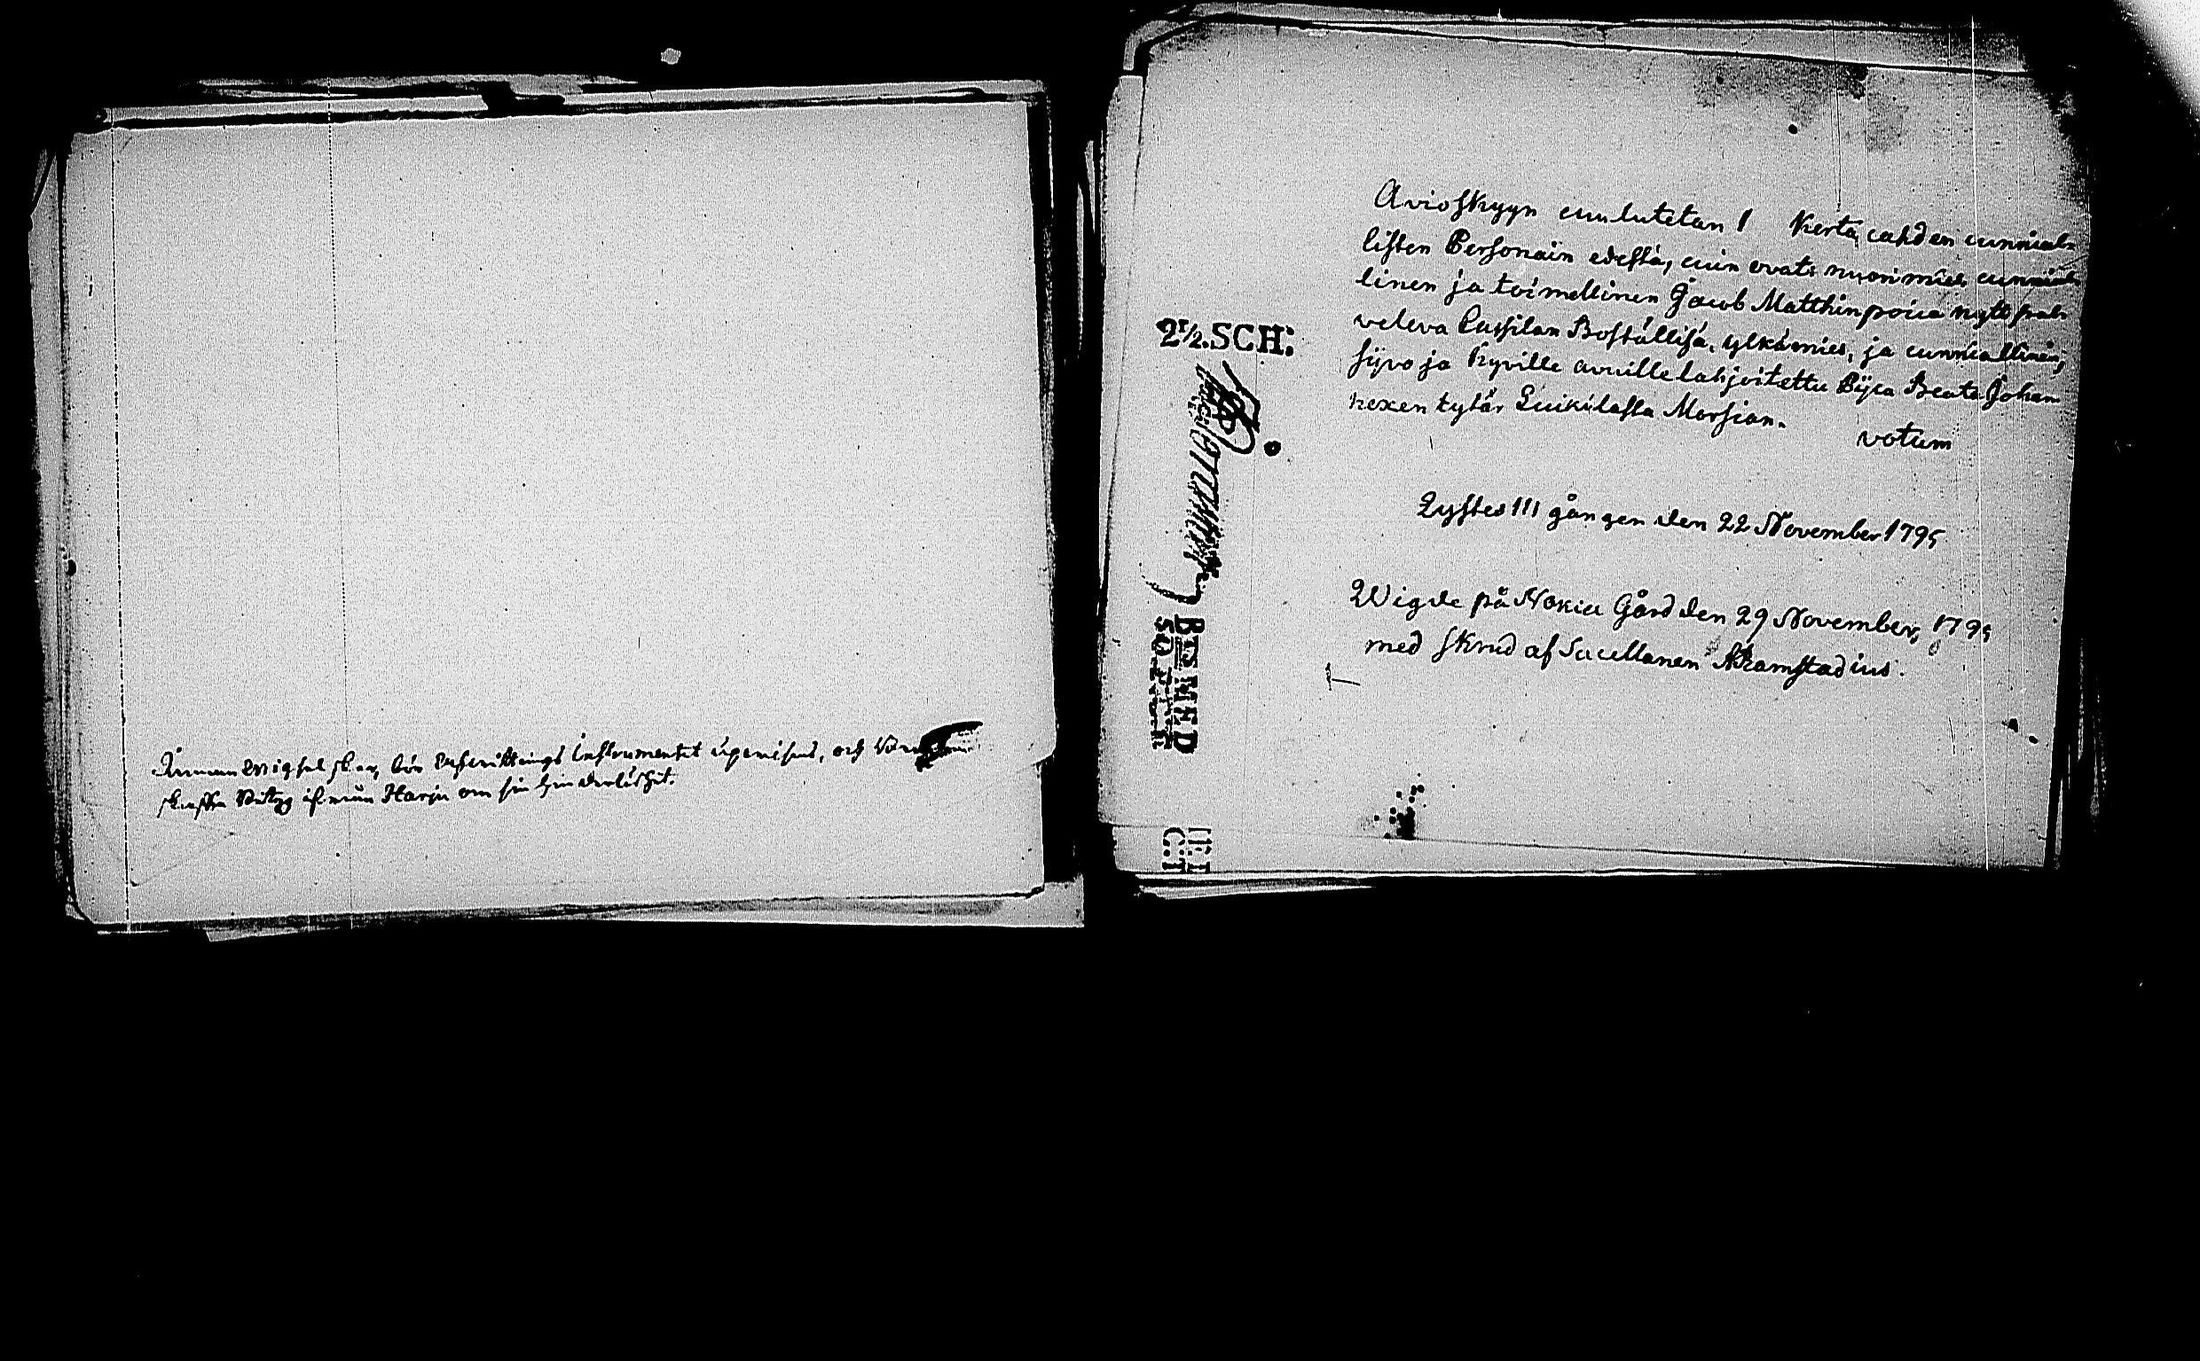 Innan Wigsel sker, bör Afwittrings Instrumentet upwisas, och
skaffa Betyg ifrån Harju om sin hinderlöshet.
Avioskyyn cuulutetan I Kerta cahden cunnial-
listen Personain edestä, cuin ovat: nuorimies cunnial-
linen ja toimellinen Jacob Matthinpoica nytt pal-
veleva Cussilan Boställisä, ylkämies, ja cunniallinen,
sijvo ja hyville avuille lahjoitettu Pijca Beata Johan
nexen tytär Luikilasta Morsian.
votum
2½.SCH:
Lystes III gången den 22 November 1795
Wigde på Nokia Gård den 29 November, 1795
med skrud af Sacellanen Akamstadius.